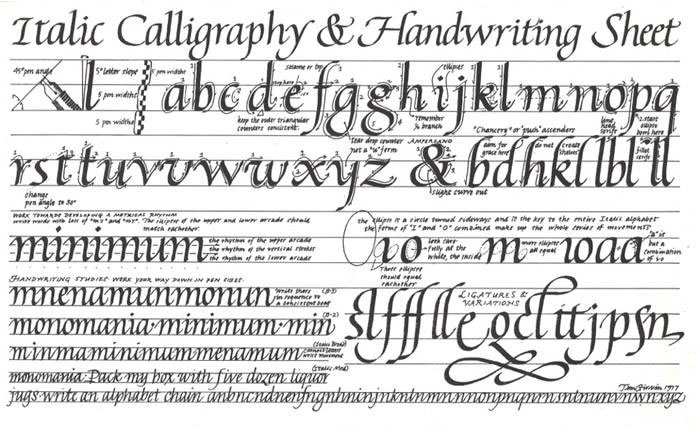 Italic Calligraphy & Handwriting Sheet
45° pen angle
5° letter slope
5 pen widths
5 pen widths
5 pen widths
sesame or top
ellipses
keep the outer triangular
counters consistent.
remember
½ branch
"Chancery" or "push" ascenders
a b c d e f g g h i j k l m n o p q
tear drop counter
put a "u" form
AMPERSAND
aim for
grace here
do not
create
shelves
r s t t u v v w w x y z & b d h k l b l l
change
pen angle to 30°
slight curve out
WORK TOWARDS DEVELOPING A MATRICAL RHYTHM
write words with lots of "m's" and "n's". The ellipse of the upper and lower arcade should
match eachother.
the ellipse is a circle turned sideways and is the key to the entire Italic alphabet
the forms of "I" and "O" combined make up the whole series of movements
minimum
the rhythm of the upper arcade
the rhythm of the vertical strokes
the rhythm of the lower arcade
look care-
fully at the
white, the inside
more ellipses
all equal
"a" is
but a
combination
of
These ellipses
should equal
eachother
HANDWRITING STUDIES. WORK YOUR WAY DOWN IN PEN SIZES.
mnenamunmonun
write these
in sequence to
a consistent beat
(B-3)
monomania·minimum·min
(B-2)
minmaminimummenamum
(Italic Broad)
monomania·Pack my box with five dozen liquor
(Italic Med)
jugs·write an alphabet chain
LIGATURES &
VARIATIONS
Tim Girvin 1977